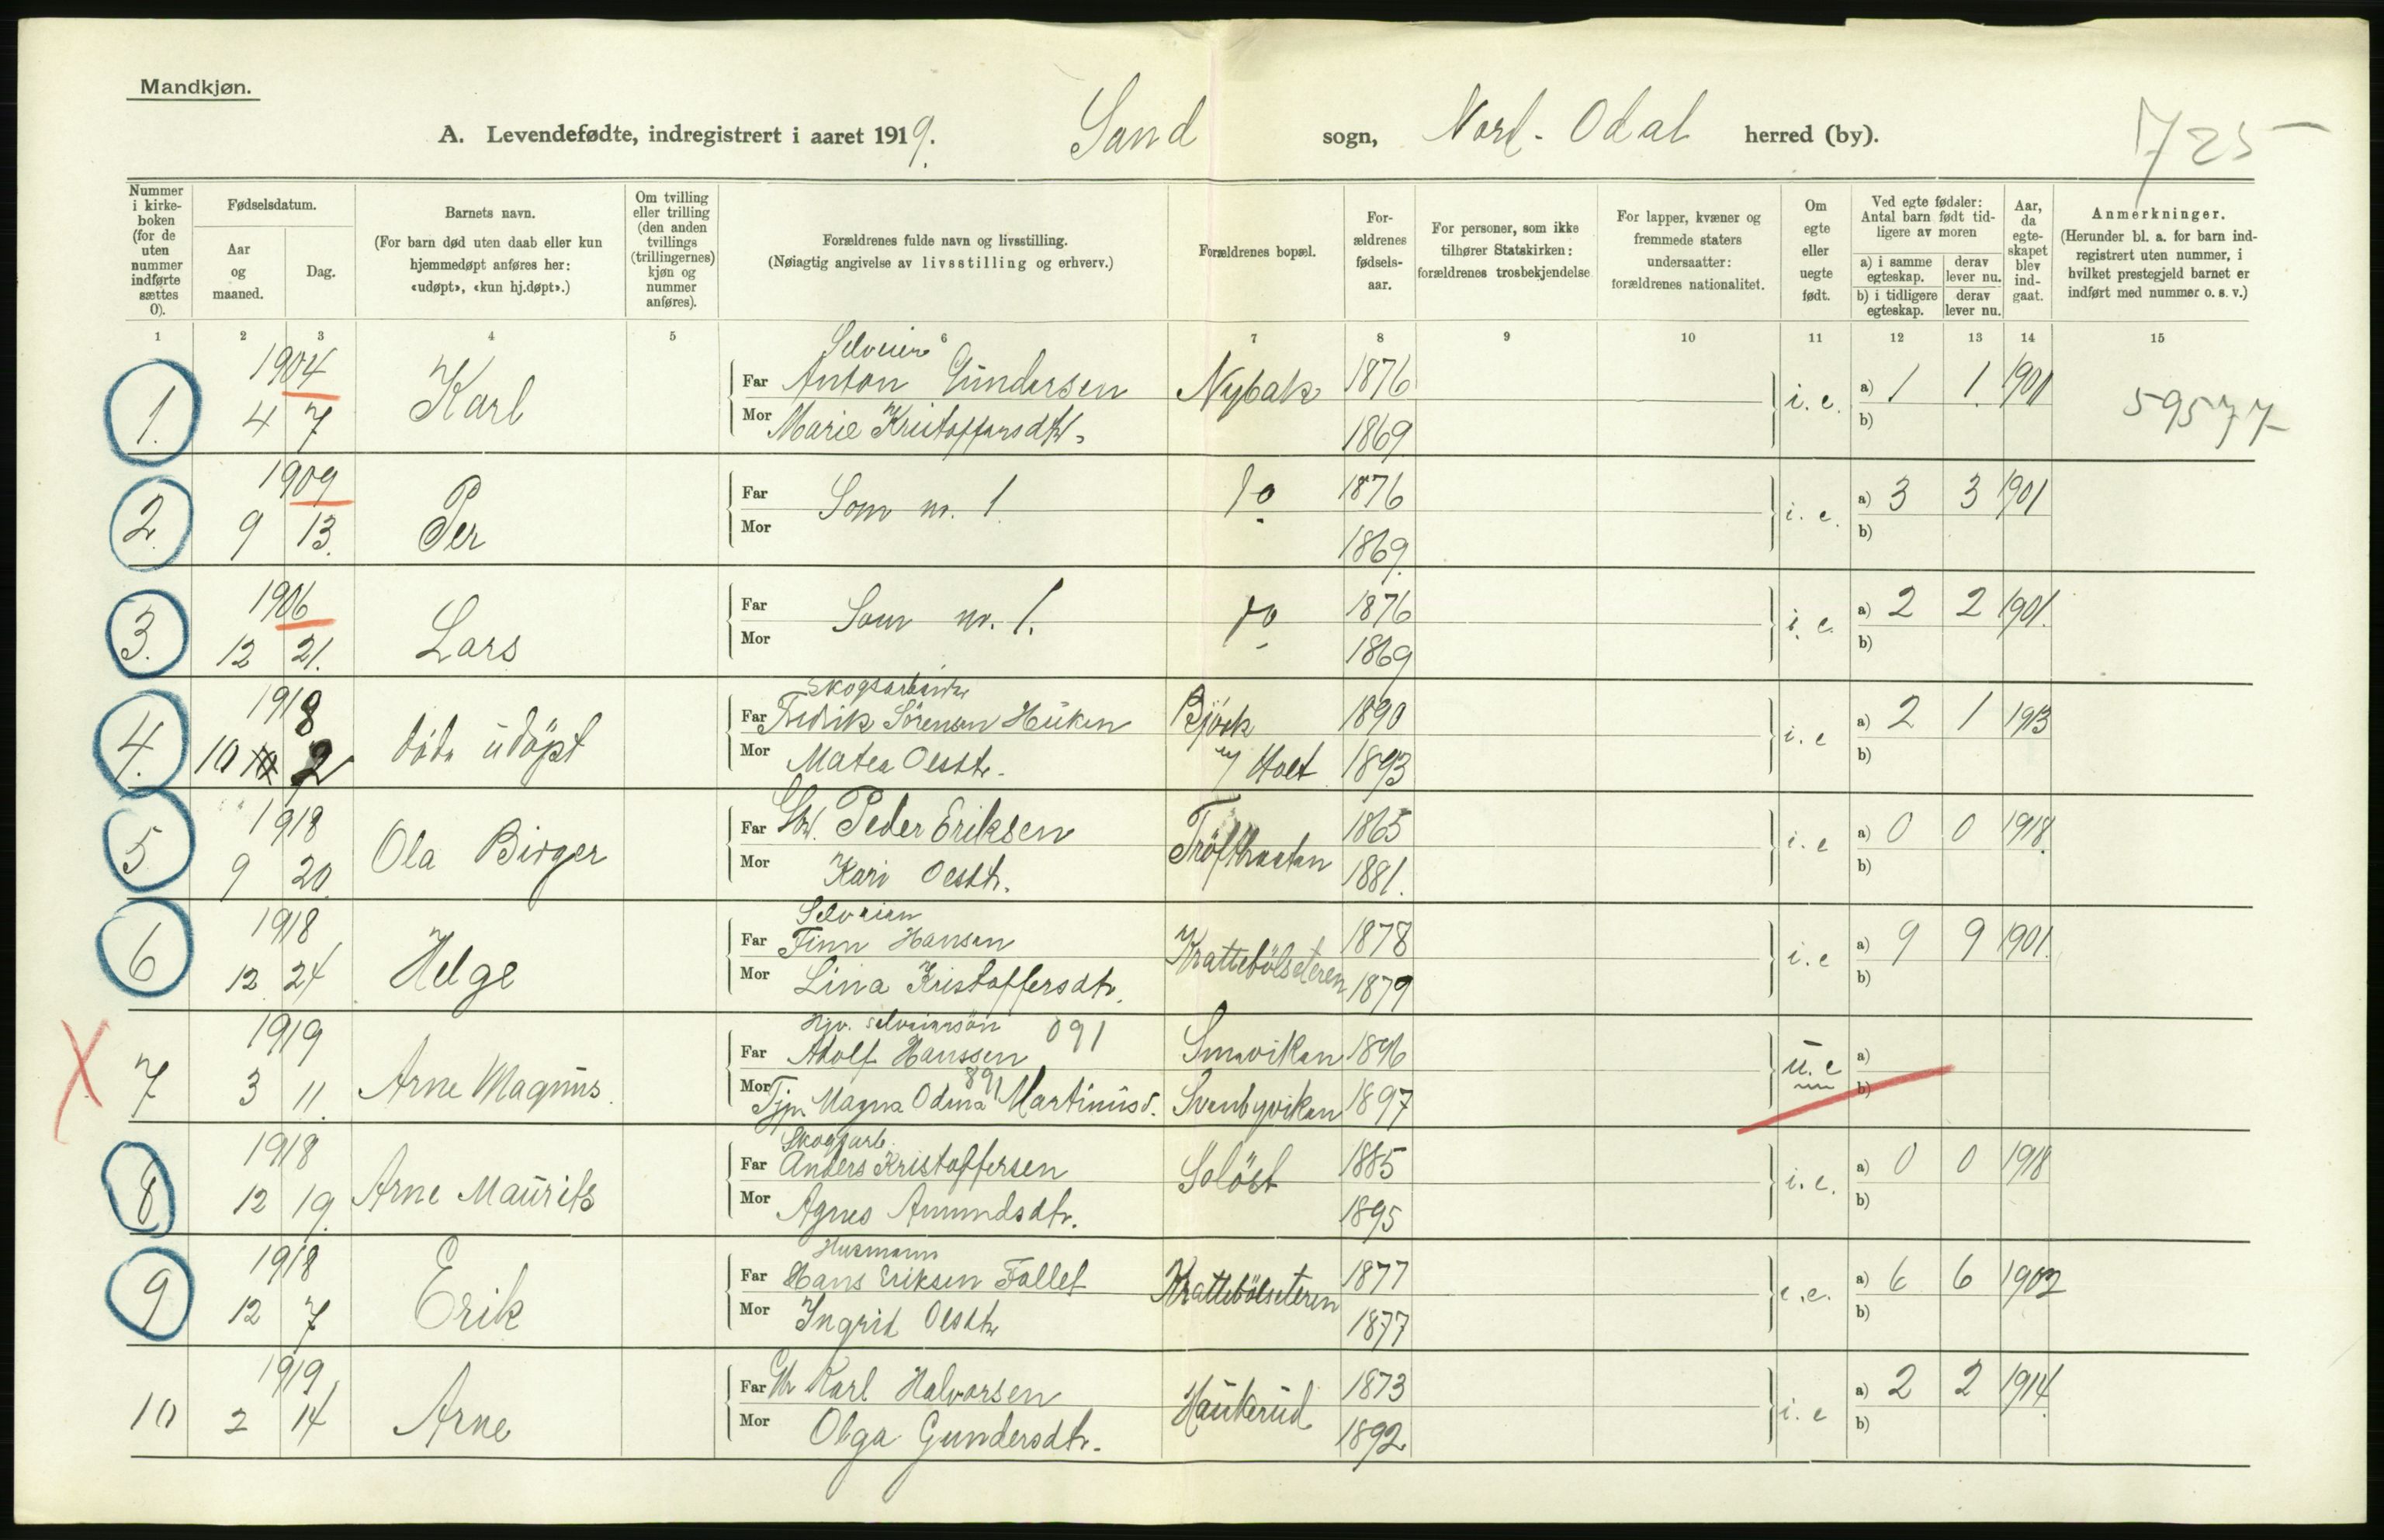 Mandkjøn.
A. Levendefødte, indregistrert i aaret 1919. Sand sogn, Nord-Odal herred (by). 725
Nummer i kirke-boken (for de uten nummer indførte sættes 0).
Fødselsdatum.
Aar og maaned.
Dag.
Barnets navn.
(For barn død uten daab eller kun hjemmedøpt anføres her: «udøpt», «kun hj.døpt».)
Om tvilling eller trilling (den anden tvillings (trillingernes) kjøn og nummer anføres).
Forældrenes fulde navn og livsstilling.
(Nøiagtig angivelse av livsstilling og erhverv.)
Forældrenes bopæl.
For-ældrenes fødsels-aar.
For personer, som ikke tilhører Statskirken: forældrenes trosbekjendelse
For lapper, kvæner og fremmede staters undersaatter: forældrenes nationalitet.
Om egte eller uegte født.
Ved egte fødsler: Antal barn født tid-ligere av moren
a) i samme egteskap. derav lever nu.
b) i tidligere egteskap. derav lever nu.
Aar, da egte-skapet blev ind-gaat.
Anmerkninger.
(Herunder bl. a. for barn ind-registrert uten nummer, i hvilket prestegjeld barnet er indført med nummer o. s. v.)
1 2 3 4 5 6 7 8 9 10 11 12 13 14 15
1904 Selveier
1. 4 7 Karl Far Anton Gundersen Nybak 1876 i. e. a) 1 1 1901 59577
Mor Marie Kristoffersdtr. 1869 b)
1909
2. 9 13. Per Far Som nr. 1 Do 1876 i. e. a) 3 3 1901
Mor 1869 b)
1906
3. 12 21. Lars Far Som nr. 1. Do 1876 i. e. a) 2 2 1901.
Mor 1869 b)
1918 Skogsarbeider
4. 10 2 udöpt Far Fredrik Sörensen Björk 1890 i. e a) 2 1 1913
Mor Matea Olsdtr. 1893 b)
1918
5 9 20 Ola Birger Far Peder Eriksen 1865 i. e a) 0 0 1918.
Mor Kari Olsdtr. 1881. b)
1918 Selveier
6 12 24 Helge Far Finn Hansen Krattebölseteren 1878 i. e a) 9 9 1901.
Mor Lina Kristoffersdtr. 1879 b)
1919 091
7 3 11. Arne Magnus. Far Adolf Hanssen 1896 u. e a)
Mor Tjp. Magna Odina 891 Martinusd. Svenbyvikan 1897 b)
1918 Skogsarb.
8 12 19. Arne Maurits Far Anders Kristoffersen Solöst 1885 i. e. a) 0 0 1918
Mor Agnes Amundsdtr. 1895 b)
1918 Husmann
9 12 7 Erik Far Hans Eriksen Krattebölseteren 1877 i. e. a) 6 6 1902
Mor Ingrid Olsdtr 1877 b)
1919
10 2 14 Arne Far Karl Halvorsen Haukerud 1873 i. e a) 2 2 1914.
Mor Olga Gundersdtr. 1892 b)